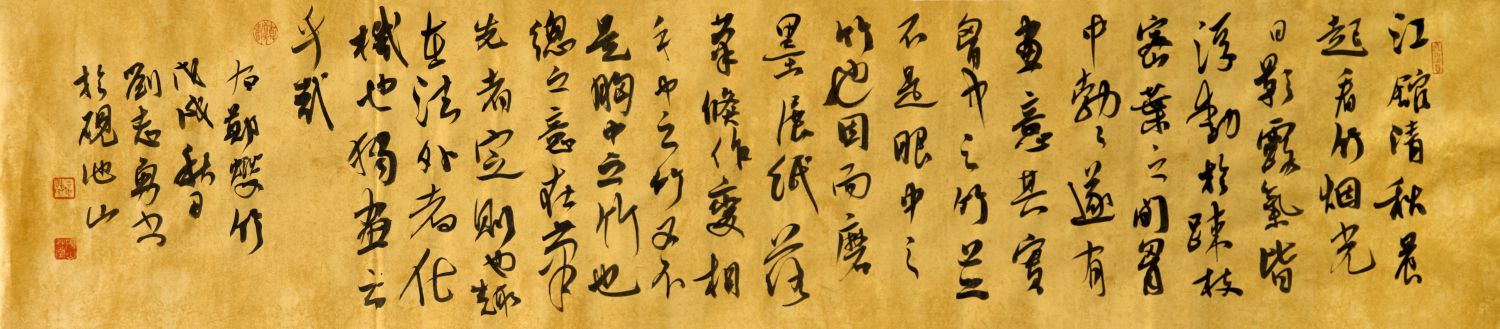 江館清秋晨
起看竹烟光
日影露氣皆
浮動於踈枝
密葉之間胷
中勃々遂有
畫意其實
胷中之竹並
不是眼中之
竹也因而磨
墨展紙落
筆倏作變相
手中之竹又不
是胸中之竹也
總之意在筆
先者定則也趣
在法外者化
機也獨畫云
乎哉
右鄭燮竹
戊戌秋
劉志勇書
於硯池山